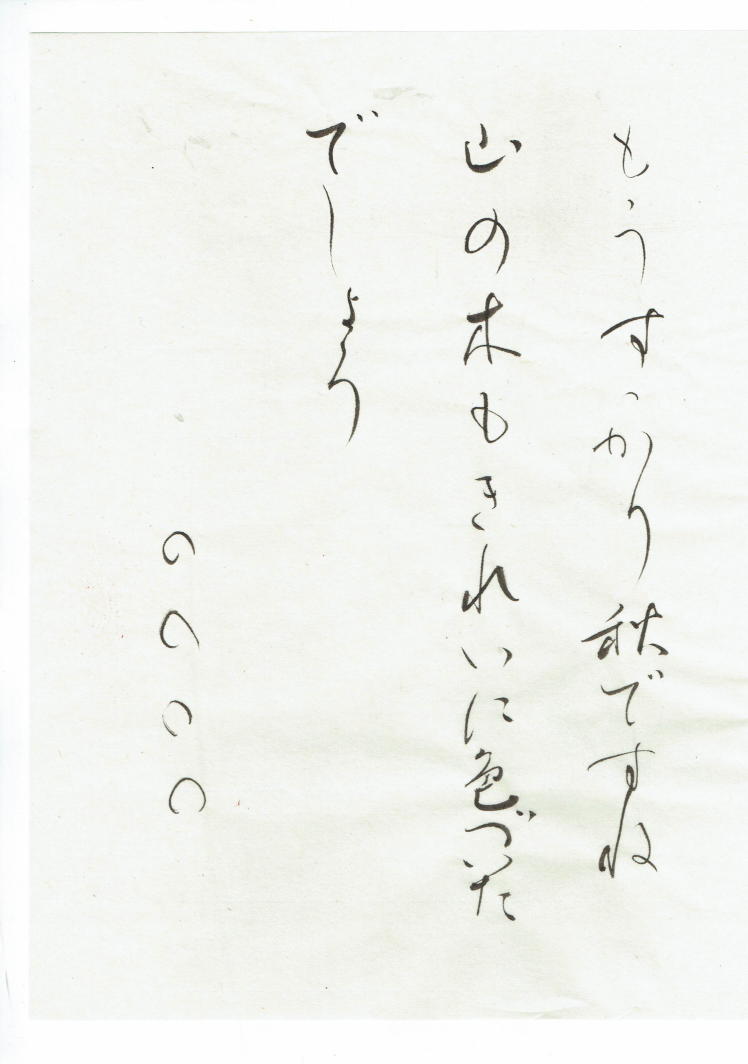 もうすっかり秋ですね
山の木もきれいに色づいた
でしょう
○○○○